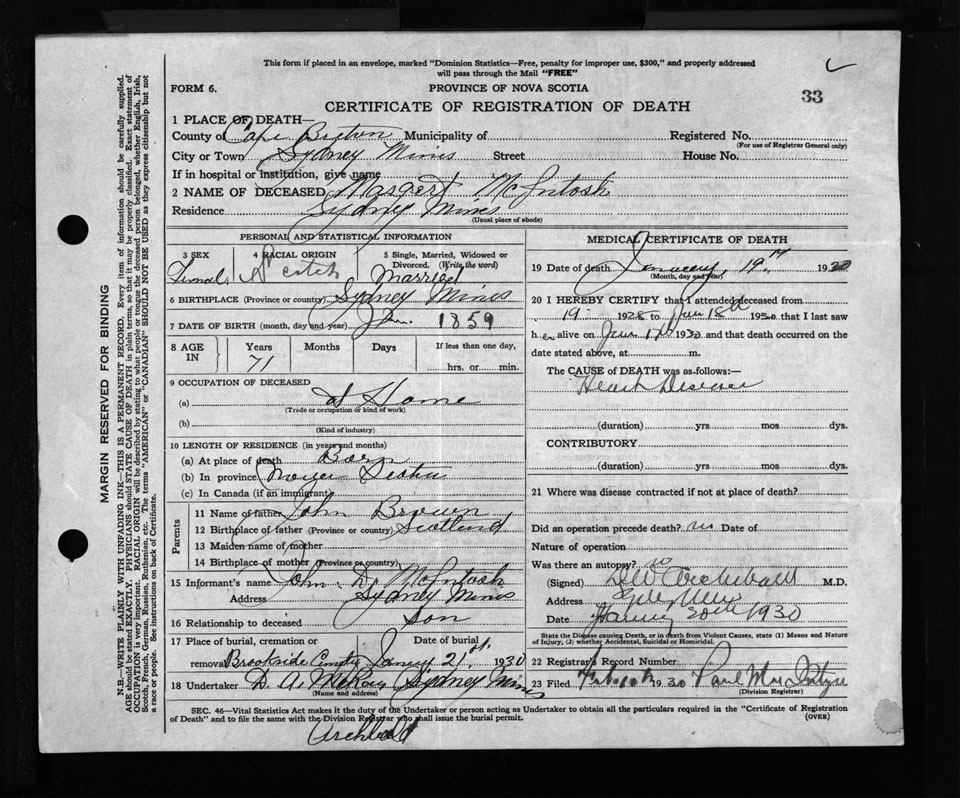 This form if placed in an envelope, marked "Dominion Statistics—Free, penalty for improper use, $300," and properly addressed
will pass through the Mail "FREE"
FORM 6. PROVINCE OF NOVA SCOTIA 33
CERTIFICATE OF REGISTRATION OF DEATH
1 PLACE OF DEATH—
County of Cape Breton Municipality of Registered No.
(For use of Registrar General only)
City or Town Sydney Mines Street House No.
If in hospital or institution, give name
2 NAME OF DECEASED Margert McIntosh
Residence Sydney Mines
(Usual place of abode)
PERSONAL AND STATISTICAL INFORMATION
3 SEX 4 RACIAL ORIGIN 5 Single, Married, Widowed or
Divorced. (Write the word)
Female Scotch Married
6 BIRTHPLACE (Province or country) Sydney Mines
7 DATE OF BIRTH (month, day and year) Jan. 1859
8 AGE IN Years Months Days If less than one day,
71 hrs. or min.
9 OCCUPATION OF DECEASED
(a) At Home
(Trade or occupation or kind of work)
(b)
(Kind of industry)
10 LENGTH OF RESIDENCE (in years and months)
(a) At place of death Born
(b) In province Nova Scotia
(c) In Canada (if an immigrant)
Parents
11 Name of father John Brown
12 Birthplace of father (Province or country) Scotland
13 Maiden name of mother
14 Birthplace of mother (Province or country)
15 Informant's name John D. McIntosh
Address Sydney Mines
16 Relationship to deceased Son
17 Place of burial, cremation or Date of burial
removal Brookside 21st. 1930
18 Undertaker D. A. McKay Sydney Mines
(Name and address)
MEDICAL CERTIFICATE OF DEATH
19 Date of death 19th 1930
(Month, day and year)
20 I HEREBY CERTIFY that I attended deceased from
19 1928 to Jan 18th 1930 that I last saw
her alive on Jan 17th 1930 and that death occurred on the
date stated above, at m.
The CAUSE of DEATH was as follows:—
Heart Disease
(duration) yrs mos dys.
CONTRIBUTORY
(duration) yrs. mos dys.
21 Where was disease contracted if not at place of death?
Did an operation precede death? no Date of
Nature of operation
Was there an autopsy? no
(Signed) Archibald M.D.
Address
Date 20th 1930
State the Disease causing Death, or in death from Violent Causes, state (1) Means and Nature
of Injury, (2) whether Accidental, Suicidal or Homicidal.
22 Registrar's Record Number
23 Filed Feb 10th 1930 Paul
(Division Registrar)
SEC. 46—Vital Statistics Act makes it the duty of the Undertaker or person acting as Undertaker to obtain all the particulars required in the "Certificate of Registration
of Death" and to file the same with the Division Registrar who shall issue the burial permit. (OVER)
Archibald
MARGIN RESERVED FOR BINDING
N.B.—WRITE PLAINLY WITH UNFADING INK—THIS IS A PERMANENT RECORD. Every item of information should be carefully supplied.
AGE should be stated EXACTLY. PHYSICIANS should STATE CAUSE OF DEATH in plain terms, so that it may be properly classified. Exact statement of
OCCUPATION is very important. RACIAL ORIGIN will be described by stating to what people or tongue the deceased person belonged, whether English, Irish,
Scotch, French, German, Russian, Ruthenian, etc. The terms "AMERICAN" or "CANADIAN" SHOULD NOT BE USED as they express citizenship but not
a race or people. See instructions on back of Certificate.